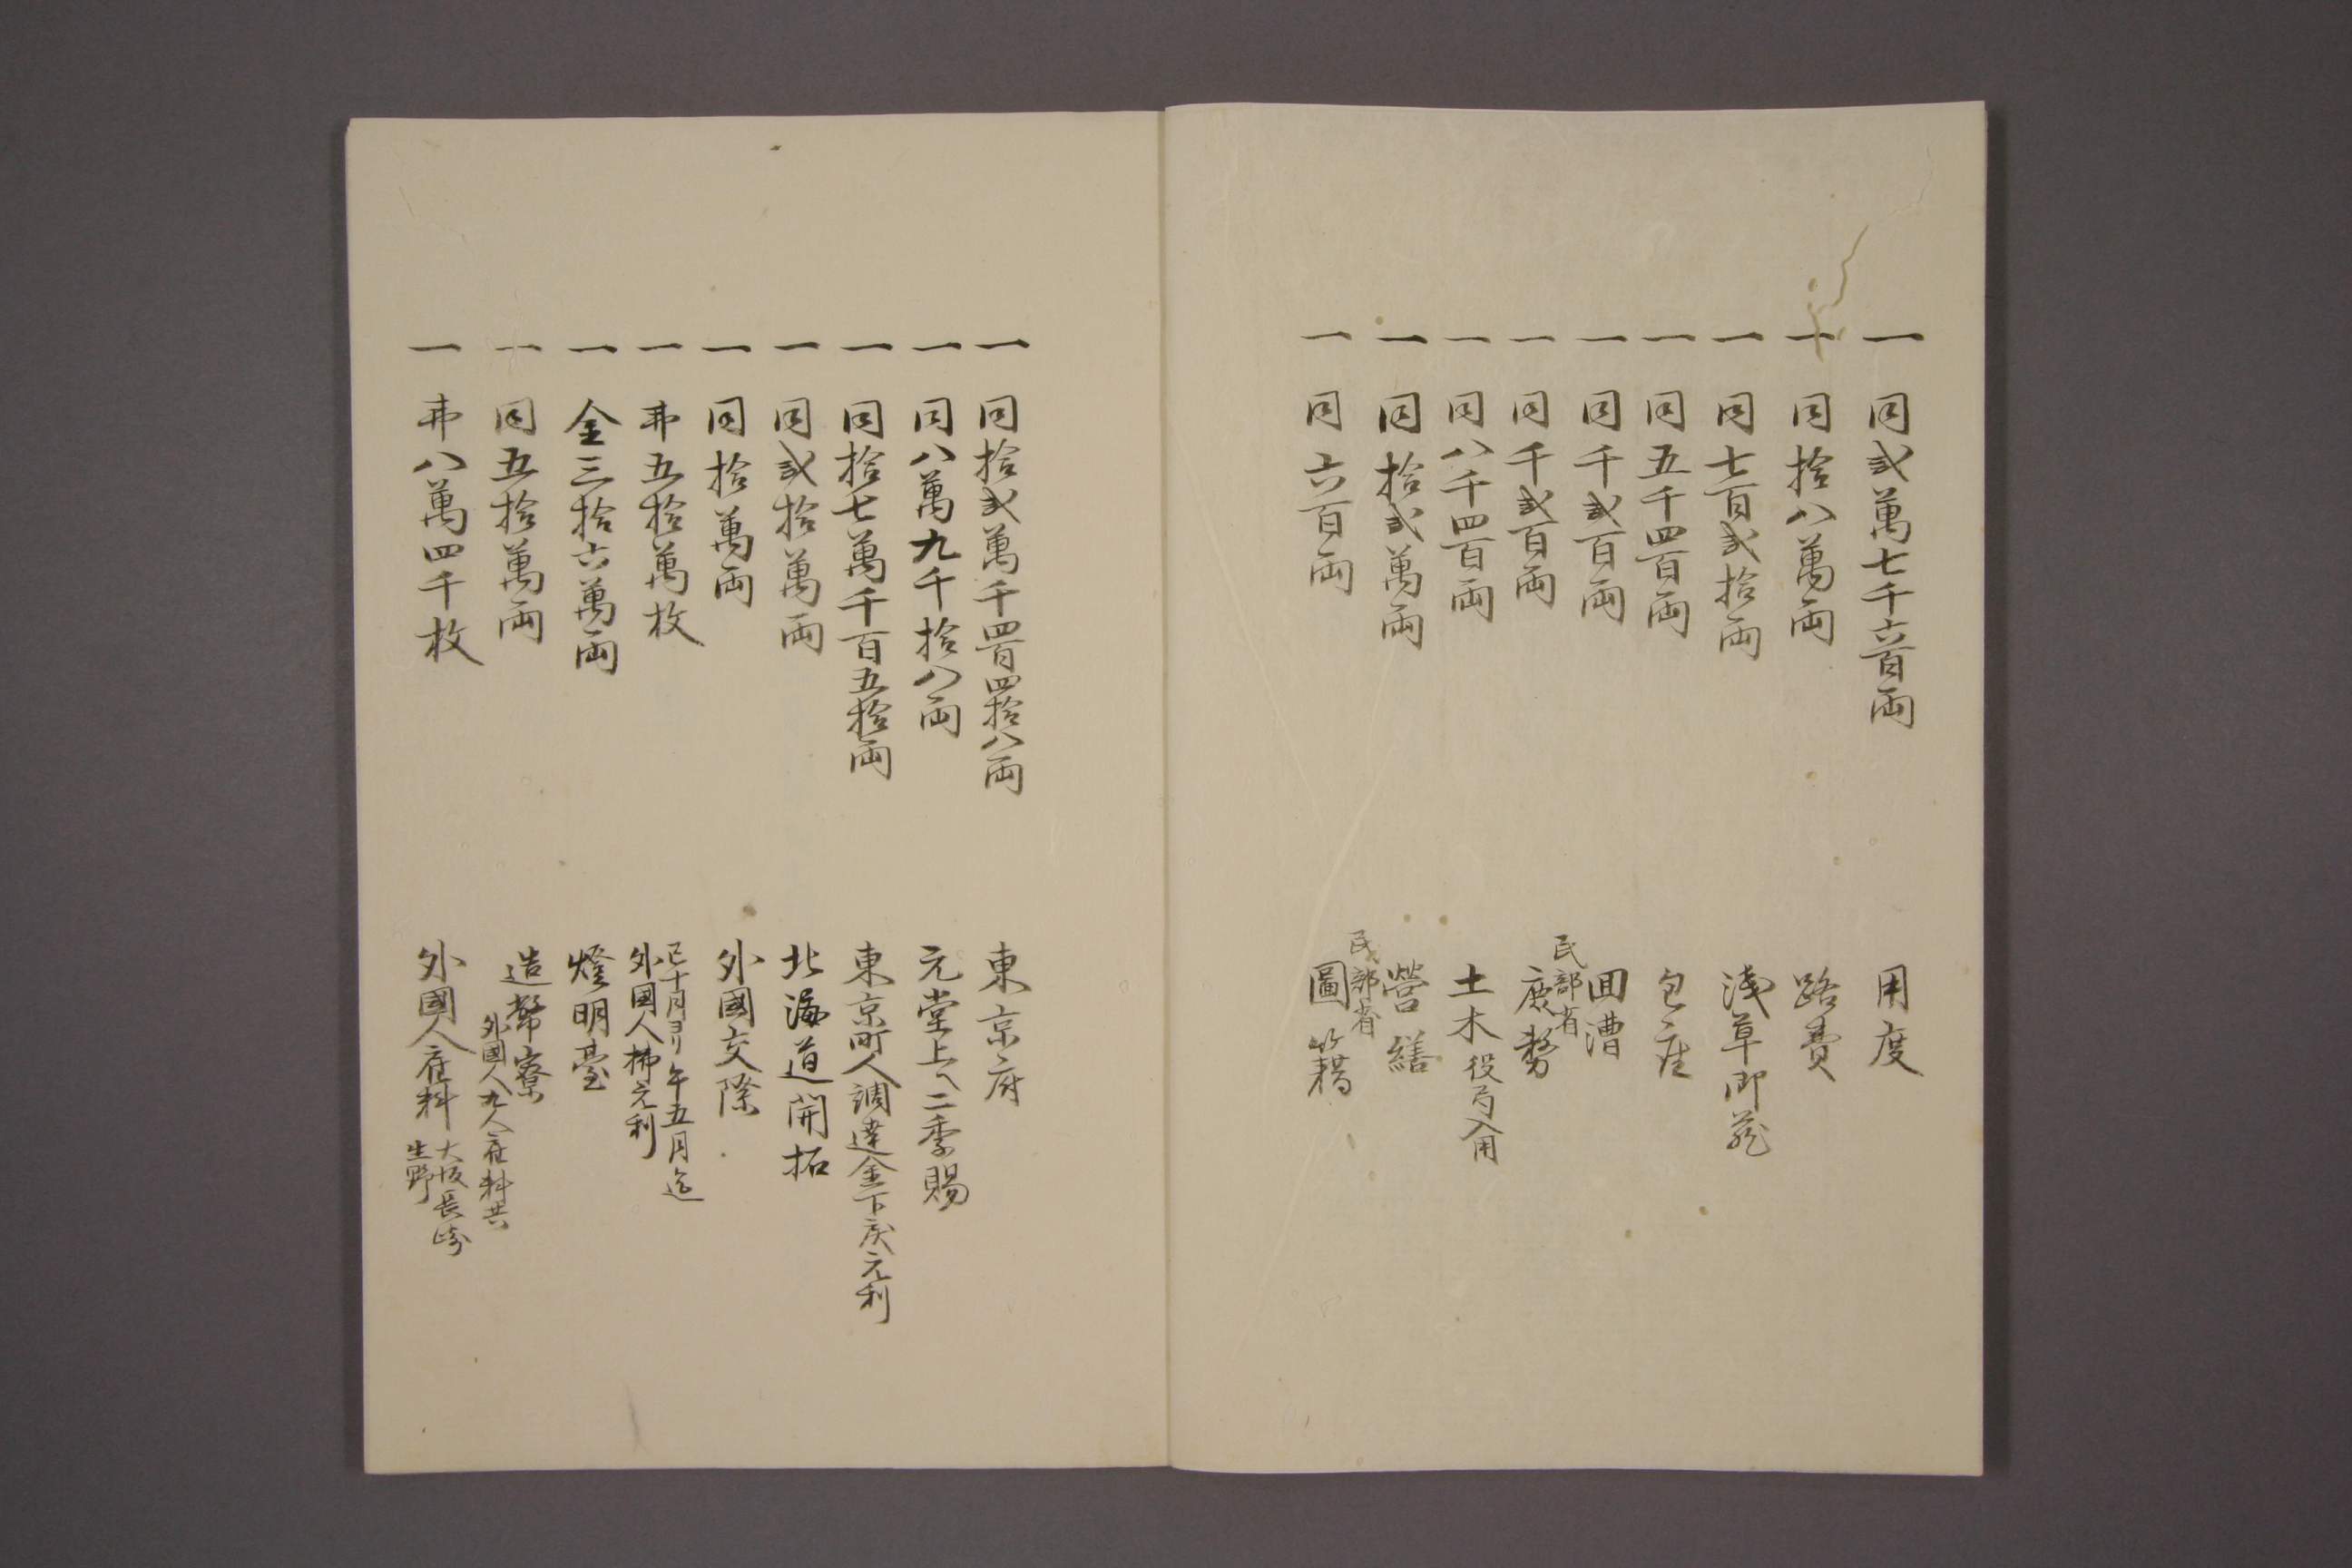 一 同弐萬七千六百両 用度
一 同拾八萬両 路費
一 同七百弐拾両 浅草御蔵
一 同五千四百両 包座
一 同千弐百両 回漕
一 同千弐百両 民部省 庶務
一 同八千四百両 土木役局入用
一 同拾弐萬両 營繕
一 同六百両 民部省 圖籍
一 同拾弐萬千四百四拾八両 東京府
一 同八萬九千拾八両 元堂上へ二季賜
一 同拾七萬千百五拾両 東京町人調達金下戻元利
一 同弐拾萬両 北海道開拓
一 同拾萬両 外國交際
一 弗五拾萬枚 巳十月ヨリ午五月迄 外國人拂元利
一 金三拾六萬両 燈明臺
一 同五拾萬両 造幣寮 外國人九人雇料共
一 弗八萬四千枚 外國人雇料 大坂長崎 生野